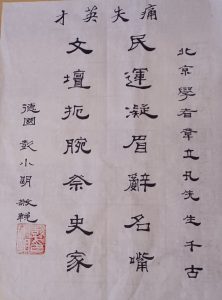 痛失英才
北京學者章立凡先生千古
民運凝眉辭名嘴
文壇扼腕祭史家
德國 彭小明 敬輓